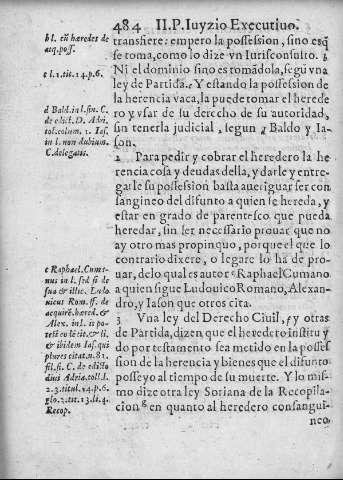 484 II.P.Iuyzio Executiuo.
transfiere: empero la possession, sino es q̃
se toma, como lo dize vn Iurisconsulto. b
Ni el dominio sino es tomãdola, segũ vna
ley de Partida. c Y estando la possession de
la herencia vaca, la puede tomar el herede
ro y vsar de su derecho de su autoridad,
sin tenerla judicial, segun d Baldo y Ia-
son.
2 Para pedir y cobrar el heredero la he
rencia cosa y deudas della, y darle y entre-
garle su possession basta aueriguar ser con
sangineo del difunto a quien se hereda, y
estar en grado de parentesco que pueda
heredar, sin ser necessario prouar que no
ay otro mas propinquo, porque el que lo
contrario dixere, o legare lo ha de pro-
uar, de lo qual es autor e Raphael Cumano
a quien sigue Ludouico Romano, Alexan-
dro, y Iason que otros cita.
3 Vna ley del Derecho Ciuil, f y otras
de Partida, dizen que el heredero instituy
do por testamento sea metido en la posses
sion de la herencia y bienes que el difunto
posseyo al tiempo de su muerte. Y lo mis-
mo dize otra ley Soriana de la Recopila-
cion g en quanto al heredero consangui-
neo
b l. cũ hæredes de
acq. poss.
c l. 1. tit. 14. p. 6.
d Bald. in l. fin. C.
de edict. D. Adri.
tol. colum. 1. Ias.
in l. non dubium.
C. de legatis.
e Raphael. Cuma-
nus in l. sed si de
sua & illic. Ludo
uicus Rom. ff. de
acquirẽ. hæred. &
Alex.
& ibidem Ias. qui
plures citat n. 82.
C. de edicto
diui Adria. toll. l.
2. 3. titul. 14. p. 6.
Recop.